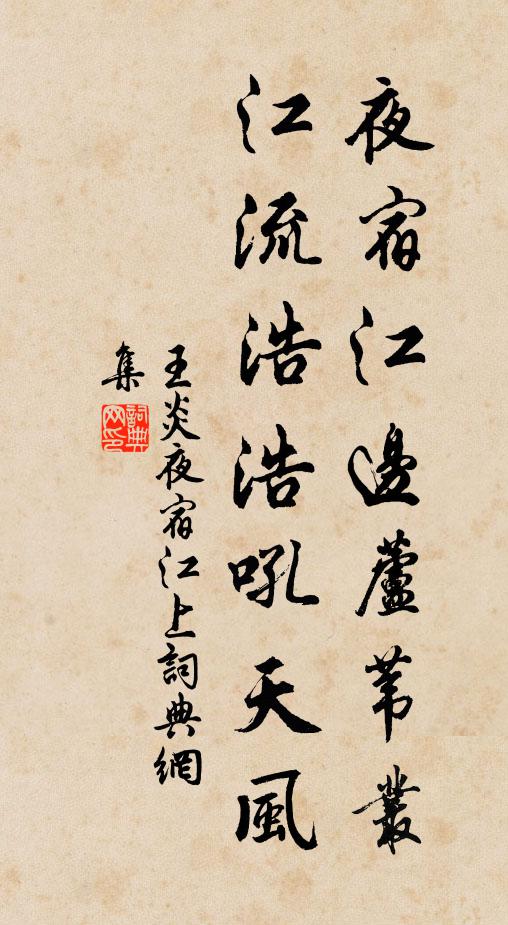 夜宿江邊蘆葦叢
江流浩浩吼天風
王炎夜宿江上詞典網
集
詞典网印